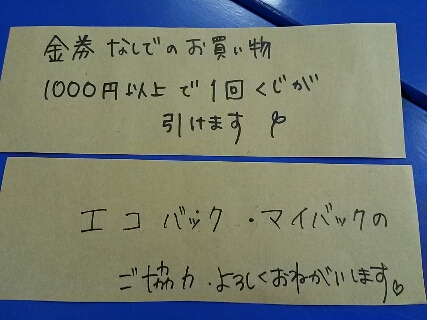 金券なしでのお買い物
1000円以上で1回くじが
引けます
エコバック・マイバックの
ご協力・よろしくおねがいします